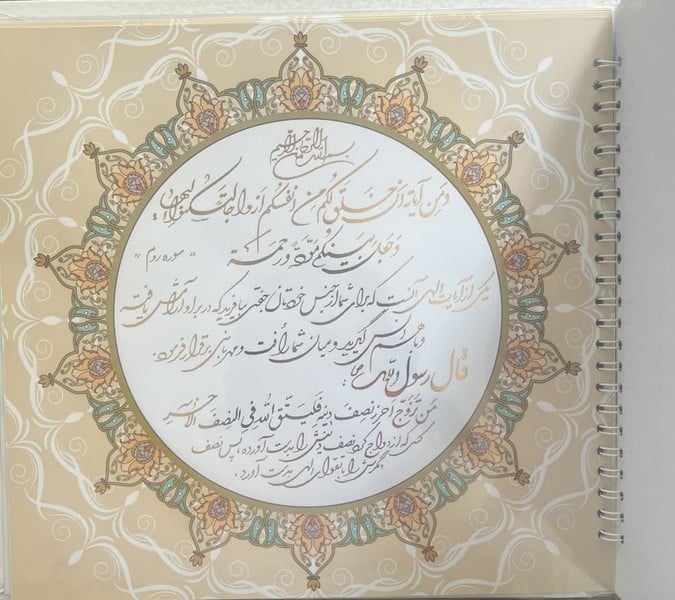 بسم الله الرحمن الرحیم
و من آیاته ان خلق لکم من انفسکم ازواجا لتسکنوا الیها
و جعل بینکم مودة و رحمة "سوره روم"
یکی از آیات الهی آنست که برای شما از جنس خودتان جفتی بیافرید که در بر او آرامش یافته
و با هم انس گیرید و میان شما رأفت و مهربانی برقرار فرمود.
قال رسول الله ص:
من تزوج احرز نصف دینه فلیتق الله فی النصف الآخر
کسی که ازدواج کند نصف دینش را بدست آورده، پس نصف
دیگرش را با تقوای الهی بدست آورد.